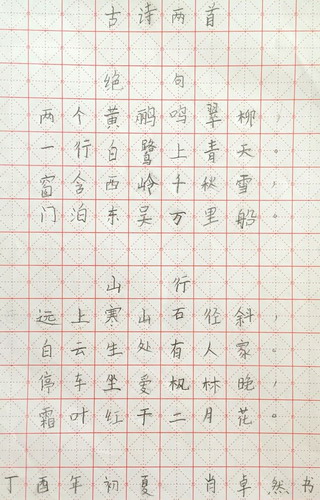 古诗两首
绝句
两个黄鹂鸣翠柳，
一行白鹭上青天。
窗含西岭千秋雪，
门泊东吴万里船。
山行
远上寒山石径斜，
白云生处有人家。
停车坐爱枫林晚，
霜叶红于二月花。
丁酉年初夏 肖卓然书